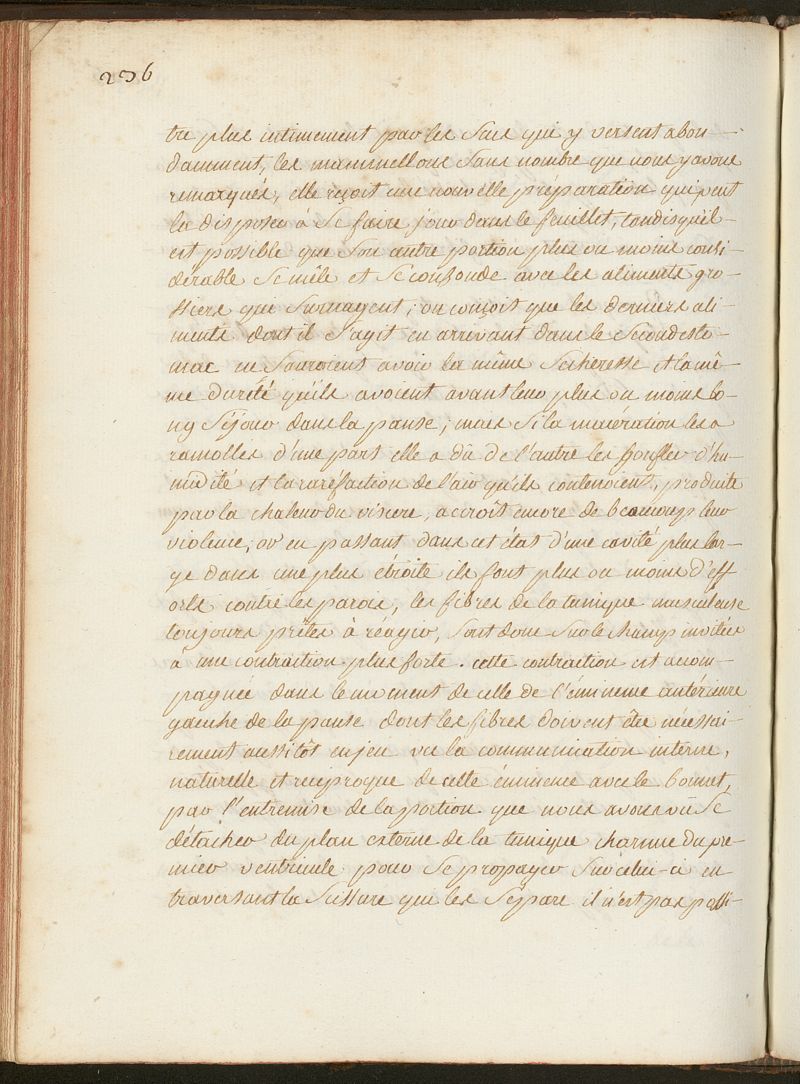 236
tre plus intimement par les Sucs qui y versent abon-
damment, les mammellons Sans nombre que nous y avons
remarqués, elle reçoit une nouvelle préparation qui peut
la disposer à Se faire jour dans le feuillet, tandisqu'il-
est possible que Son autre portion plus ou moins consi-
dérable Se mêle et Se confonde avec les aliments gro-
ssiers qui Surnagent; on conçoit que les derniers ali-
ments dont il S'agit en arrivant dans le Second esto-
mac ne Sauroient avoir la même Sécheresse et la mê-
me dureté qu'ils avoient avant leur plus ou moins lo-
ng Séjour dans la panse; mais Si la macération les a
ramollis d'une part elle a dû de l'autre les gonfler d'hu-
midité et la raréfaction de l'air qu'ils contenoient, produite
par la chaleur du viscere, accroît encore de beaucoup leur
violence, or en passant dans cet état d'une cavité plus lar-
ge dans une plus étroite ils font plus ou moins d'eff-
orts contre les parois, les fibres de la tunique musculeuse
toujours prêtes à réagir, Sont donc Sur le champ invitées
à une contraction plus forte. cette contraction est accom-
pagnée dans le moment de celle de l'éminence antérieure
gauche de la panse dont les fibres doivent être nécessai-
rement aussitôt en jeu vu la communication interne,
naturelle et réciproque de cette éminence avec le bonnet,
par l'entremise de la portion que nous avons vû Se
détacher du plan externe de la tunique charnue du pre-
mier ventricule pour Se propager Sur celui-ci en
traversant la Scissure qui les Sépare il n'est pas possi-